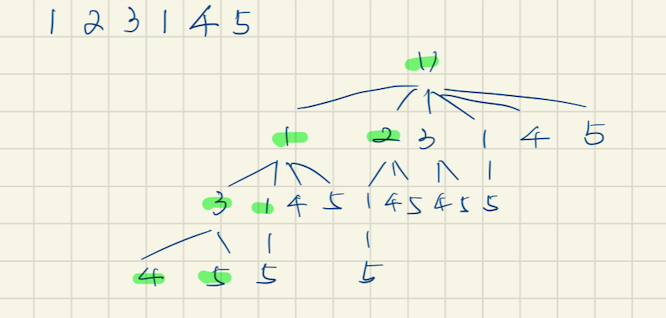 1 2 3 1 4 5
1)
1 2 3 1 4 5
3 1 4 5 1 4 5 4 5 5
4 5 5 5